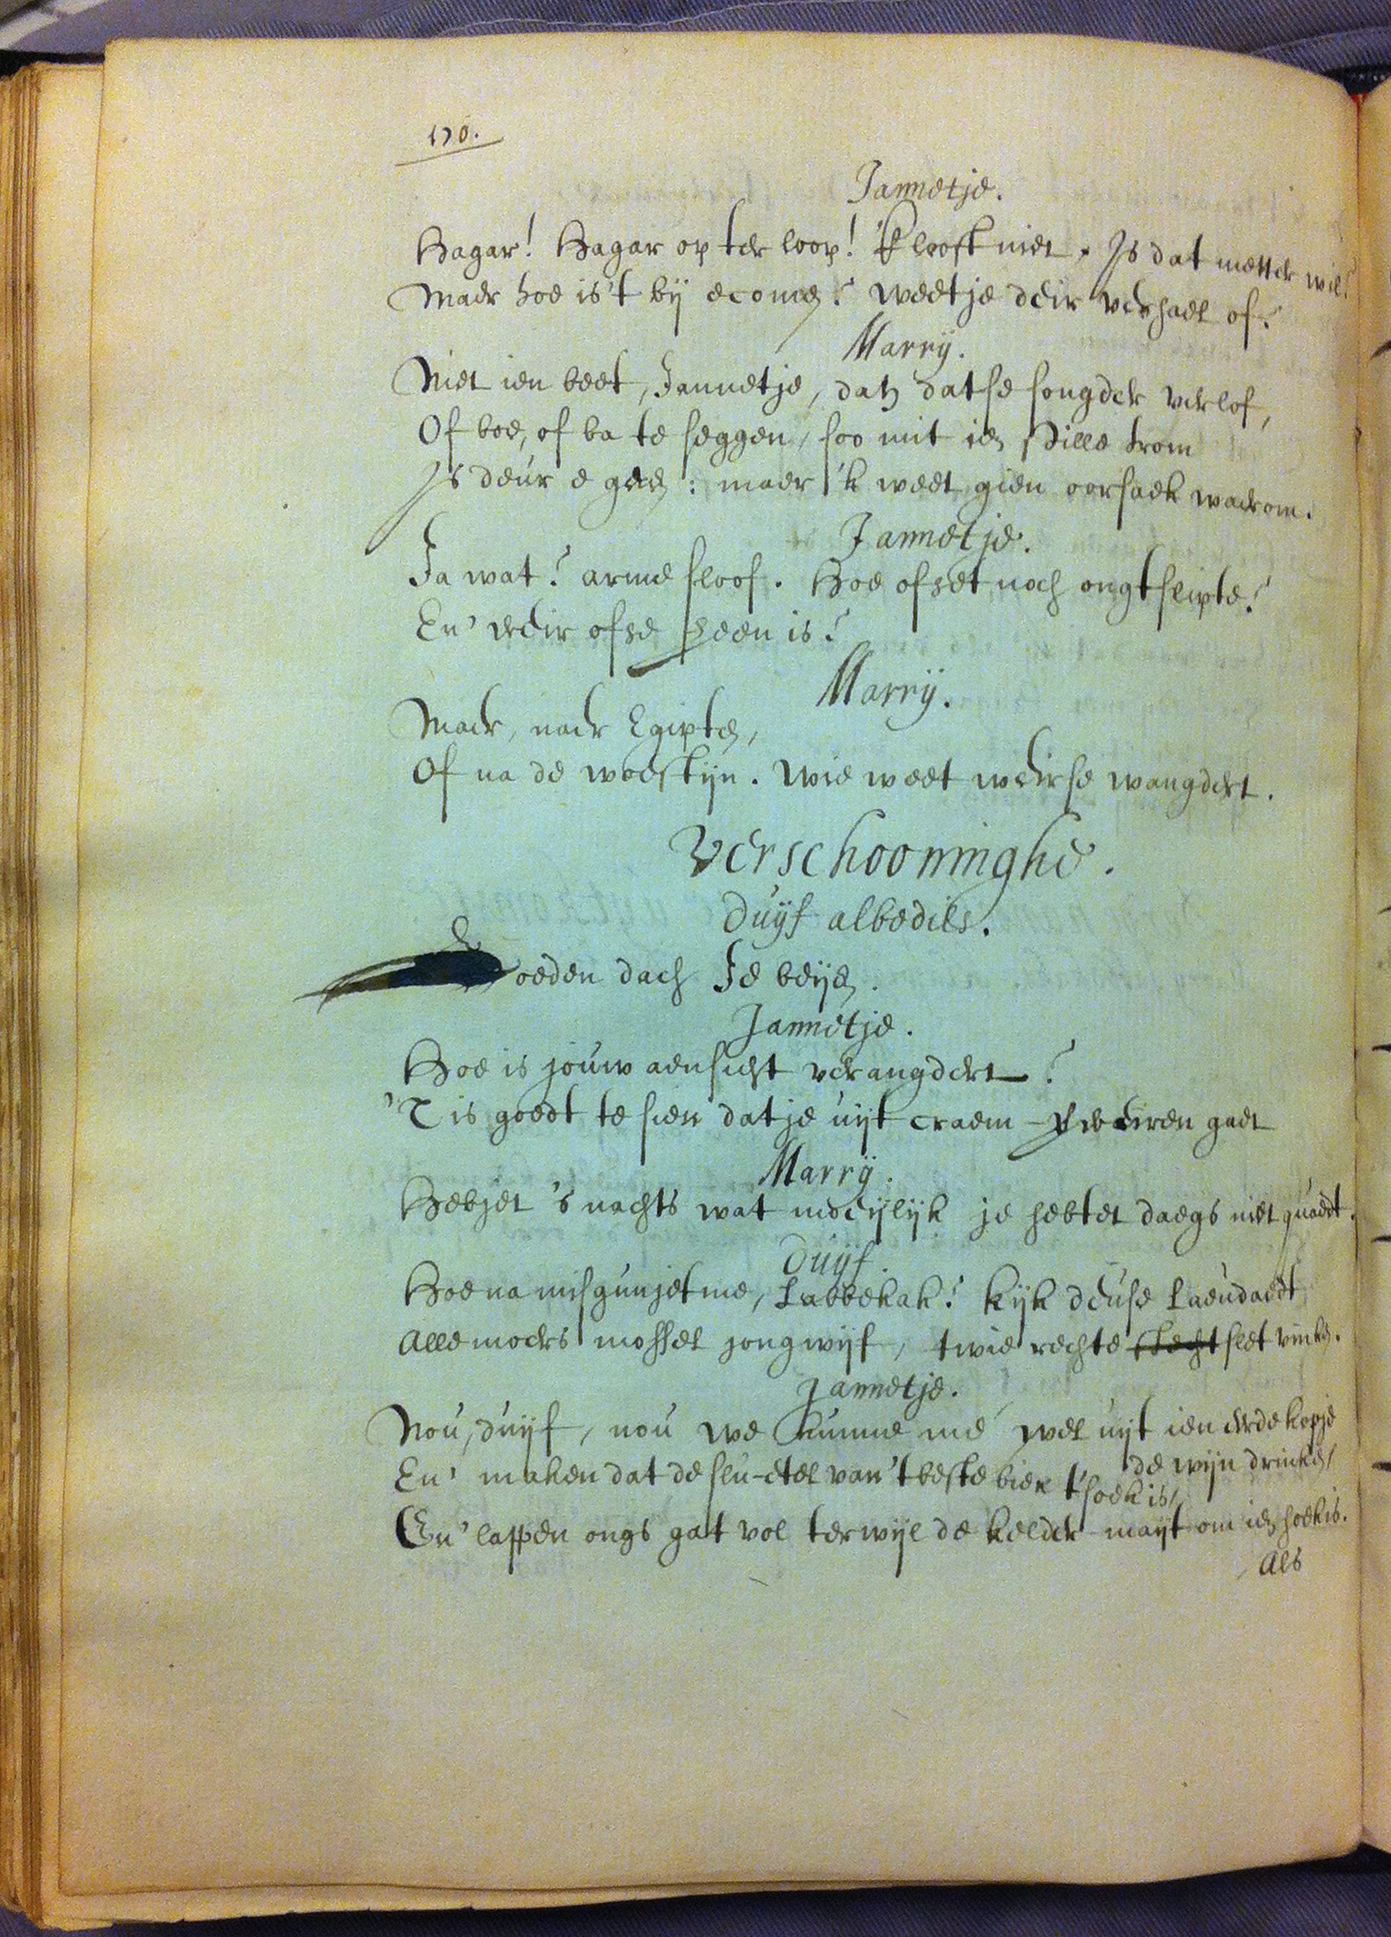 170.
Jannetje.
Hagar! Hagar op ter loop! 'k looft niet. Is dat metter wil?
Maer hoe is't bij ecomen? weetje deir verhael of?
Marrÿ.
Niet ien beet, Jannetje, dan datse songder verlof,
Of boe, of ba te seggen, soo mit ien stille trom
Is deur e geen: maer 'k weet gien oorsaek waerom.
Jannetje.
Ja wat? arme sloof. Hoe ofset noch ongtslipte?
En' weir ofse heen is?
Marrÿ.
Maer, naer Egipten,
Of na de woestijn. Wie weet weirse wangdert.
Verschooninghe.
Duÿf albedils.
Goeden dach Je beijen.
Jannetje.
Hoe is jouw aensicht verangdert?
'T is goedt te sien datje uijt craem-  gaet
Marrÿ.
Hebjet 's nachts wat moeijlijk je hebtet daegs niet quaedt.
Duÿf.
Hoe na misgunjetme, Labbekak? kijk deuse Laeudaedt
Allemoers mossel jongwijf, twie rechte slecht slet vinken.
Jannetje.
Nou, duijf, nou we kunne me wel uijt ien eerde kopje
de wijn drinken,
En' maken dat de slu-etel van 't beste bier t'soek is,
En' lappen ongs gat vol terwijl de kelder-maijt om ien hoek is.
Als